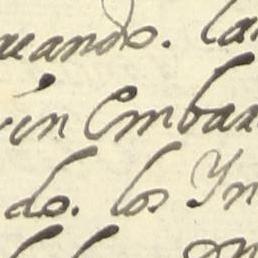 uando. la
in Embar
do. los Yn